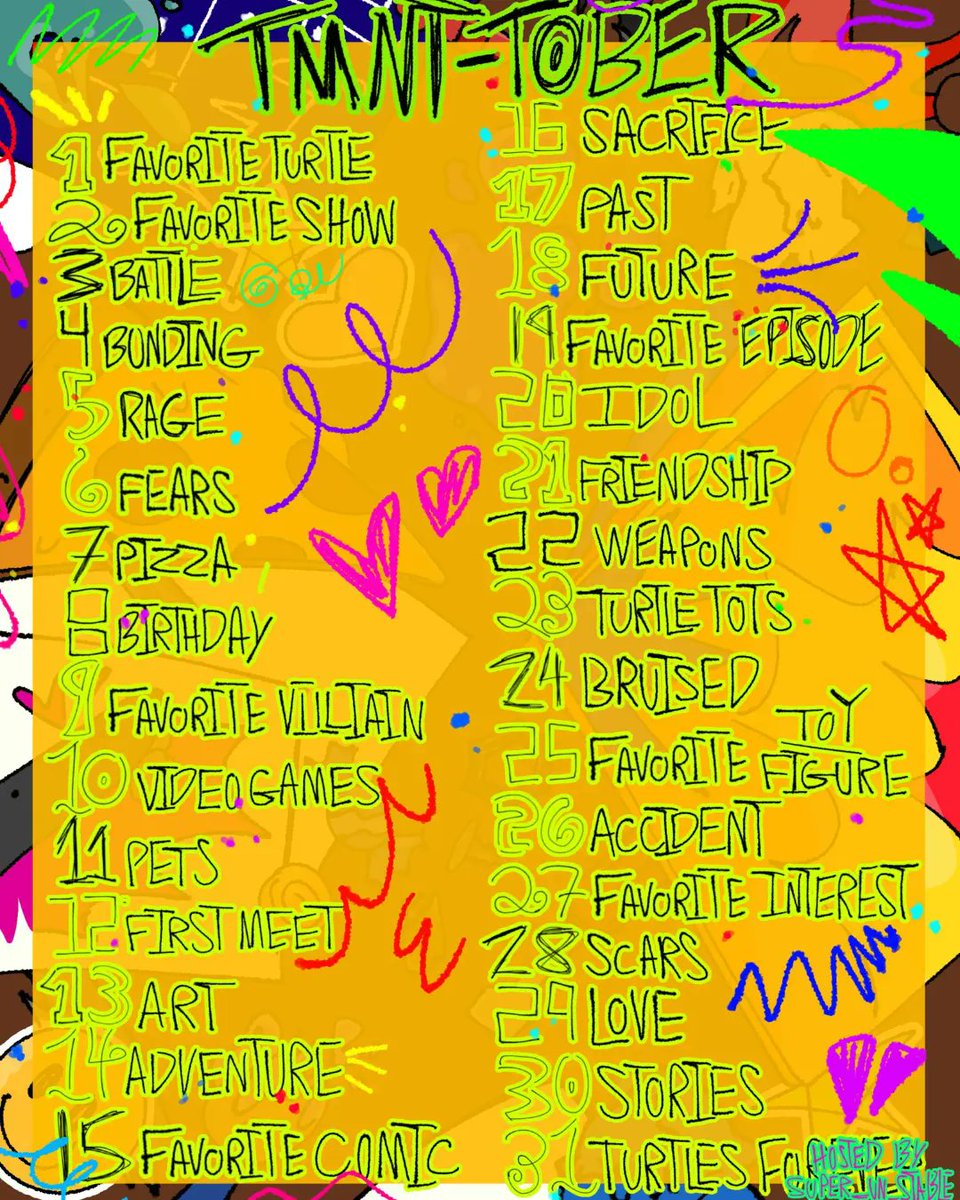 TMNT-TOBER
1 FAVORITE TURTLE
2 FAVORITE SHOW
3 BATTLE
4 BONDING
5 RAGE
6 FEARS
7 PIZZA
8 BIRTHDAY
9 FAVORITE VILLIAIN
10 VIDEO GAMES
11 PETS
12 FIRST MEET
13 ART
14 ADVENTURE
15 FAVORITE COMIC
16 SACRIFICE
17 PAST
18 FUTURE
19 FAVORITE EPISODE
20 IDOL
21 FRIENDSHIP
22 WEAPONS
23 TURTLE TOTS
24 BRUISED
25 FAVORITE TOY FIGURE
26 ACCIDENT
27 FAVORITE INTEREST
28 SCARS
29 LOVE
30 STORIES
31 TURTLES
HOSTED BY